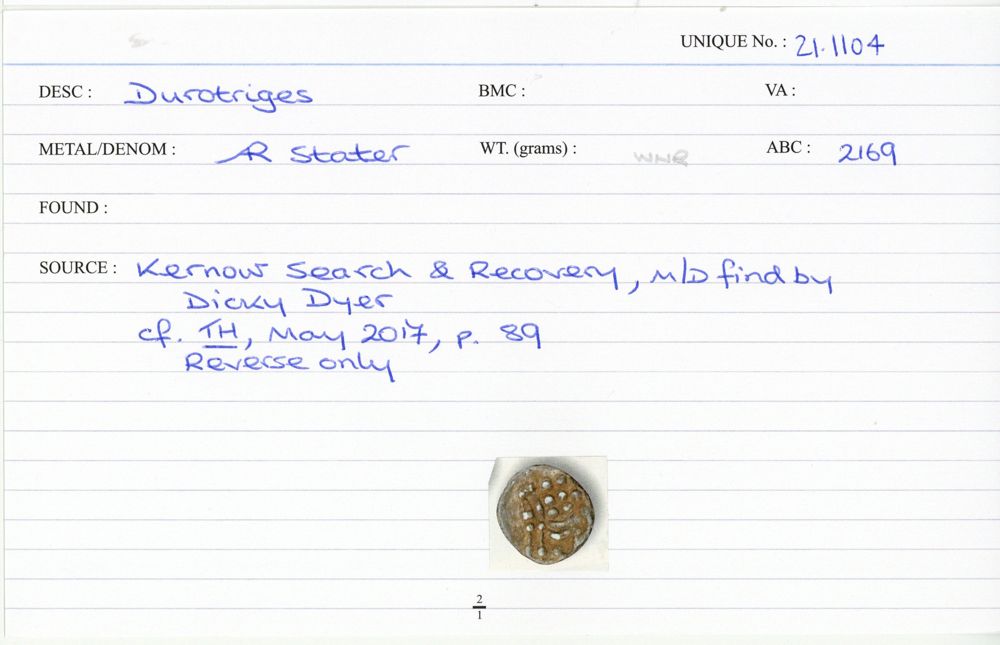 UNIQUE No. : 21.1104
DESC : Durotriges BMC : VA :
METAL/DENOM : AR Stater WT. (grams) : WNR ABC : 2169
FOUND :
SOURCE : Kernow Search & Recovery, M/D find by
Dicky Dyer
cf. TH, May 2017, p. 89
Reverse only
2
1